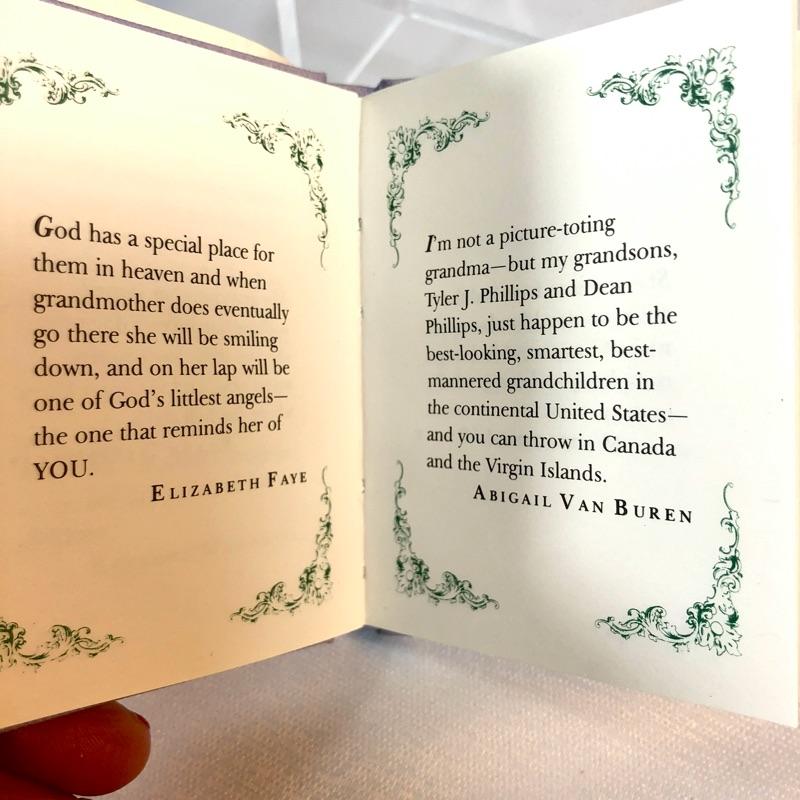 God has a special place for
them in heaven and when
grandmother does eventually
go there she will be smiling
down, and on her lap will be
one of God's littlest angels—
the one that reminds her of
YOU.
ELIZABETH FAYE
I'm not a picture-toting
grandma—but my grandsons,
Tyler J. Phillips and Dean
Phillips, just happen to be the
best-looking, smartest, best-
mannered grandchildren in
the continental United States—
and you can throw in Canada
and the Virgin Islands.
ABIGAIL VAN BUREN